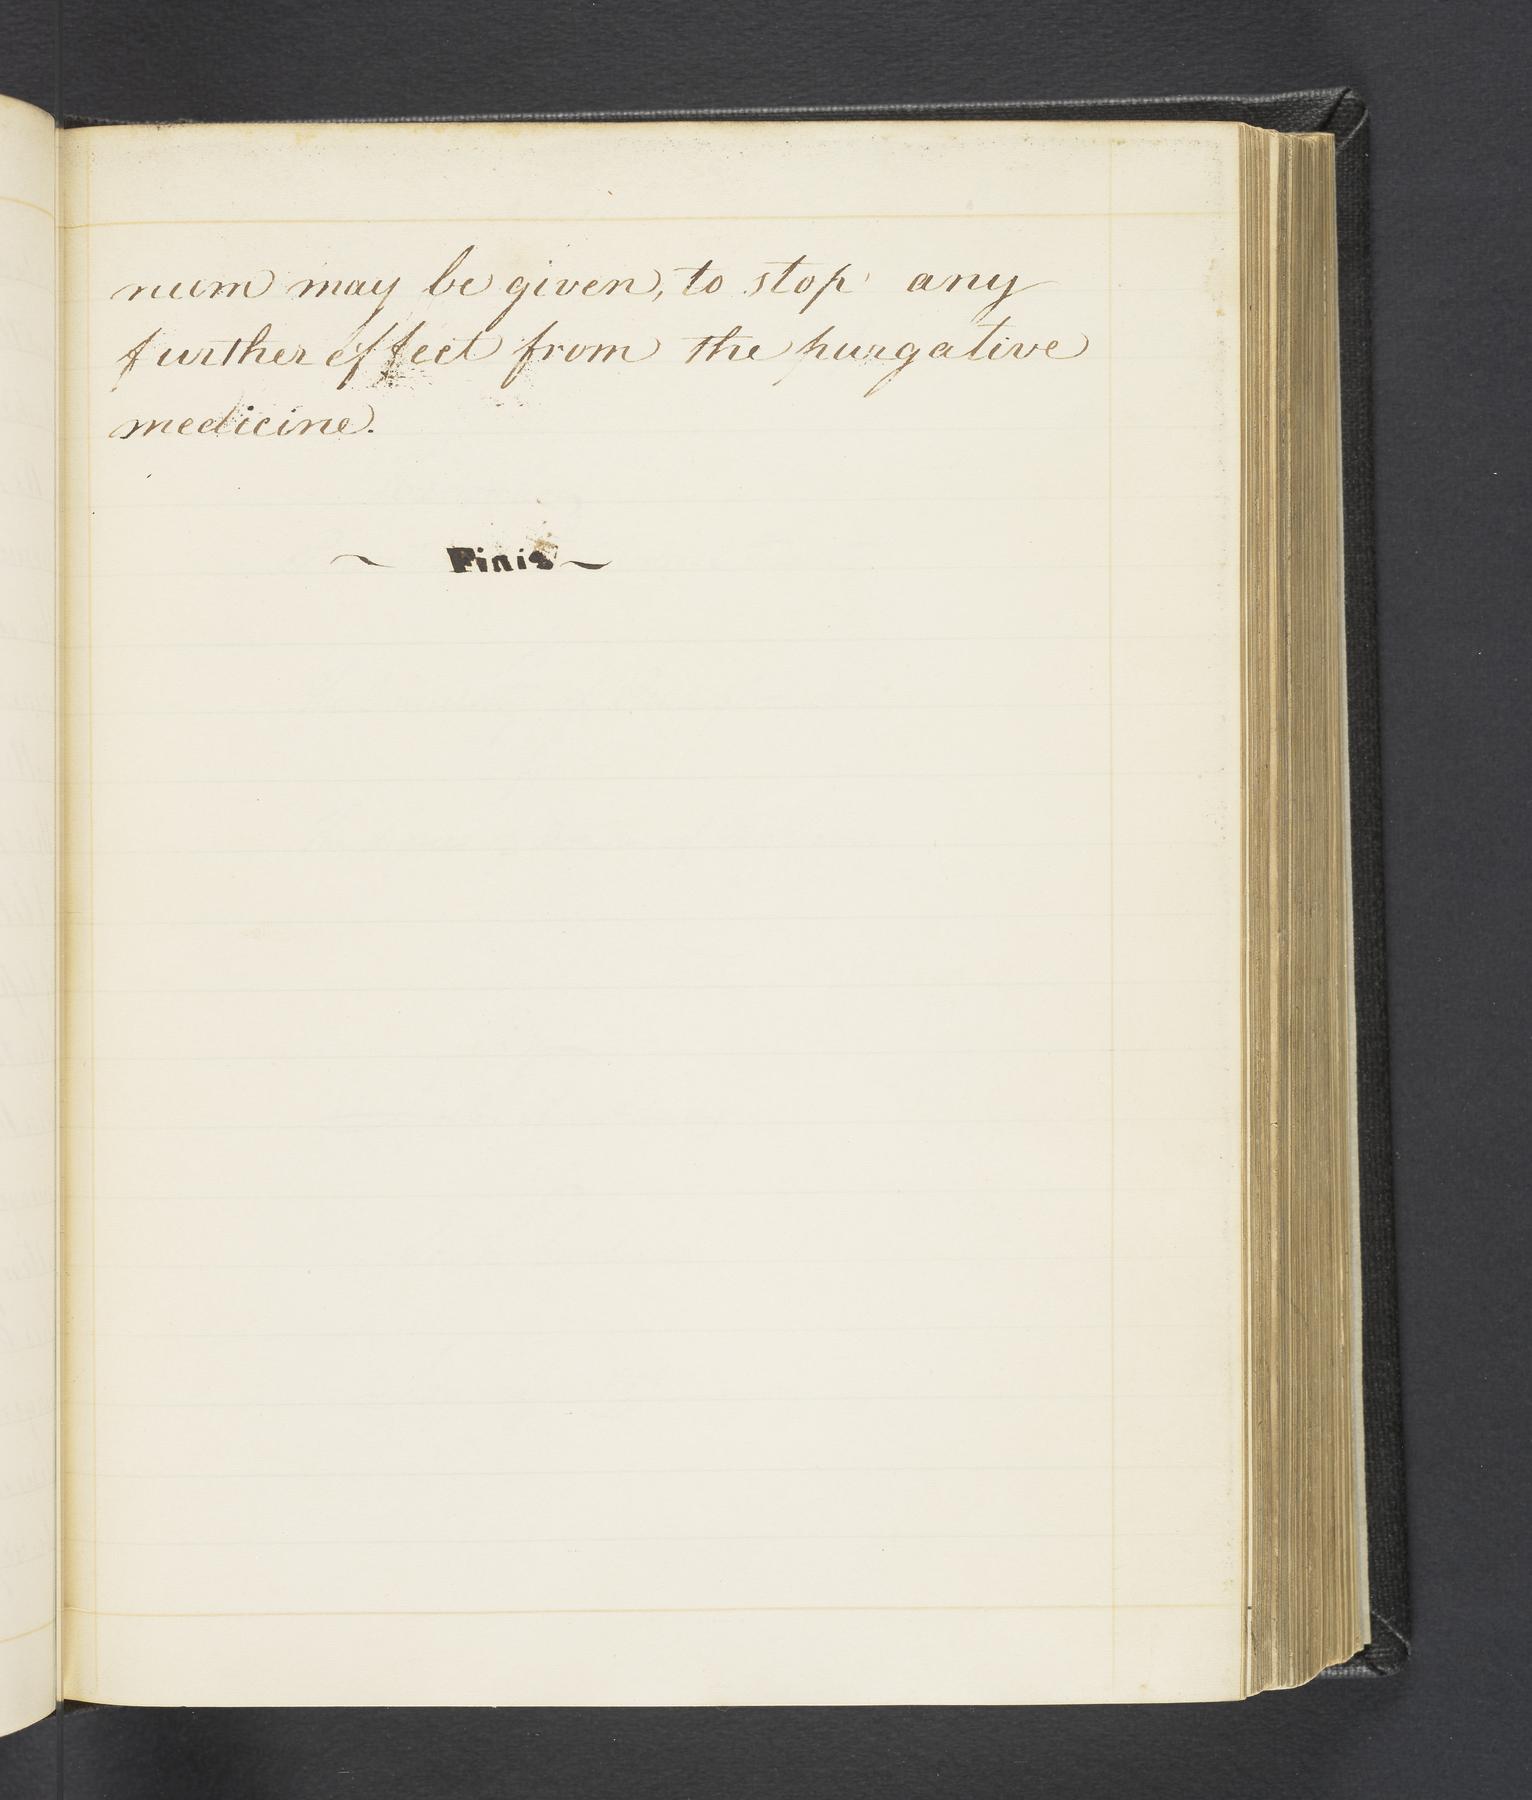 num may be given, to stop any
further effect from the purgative
medicine.
~ Finis ~